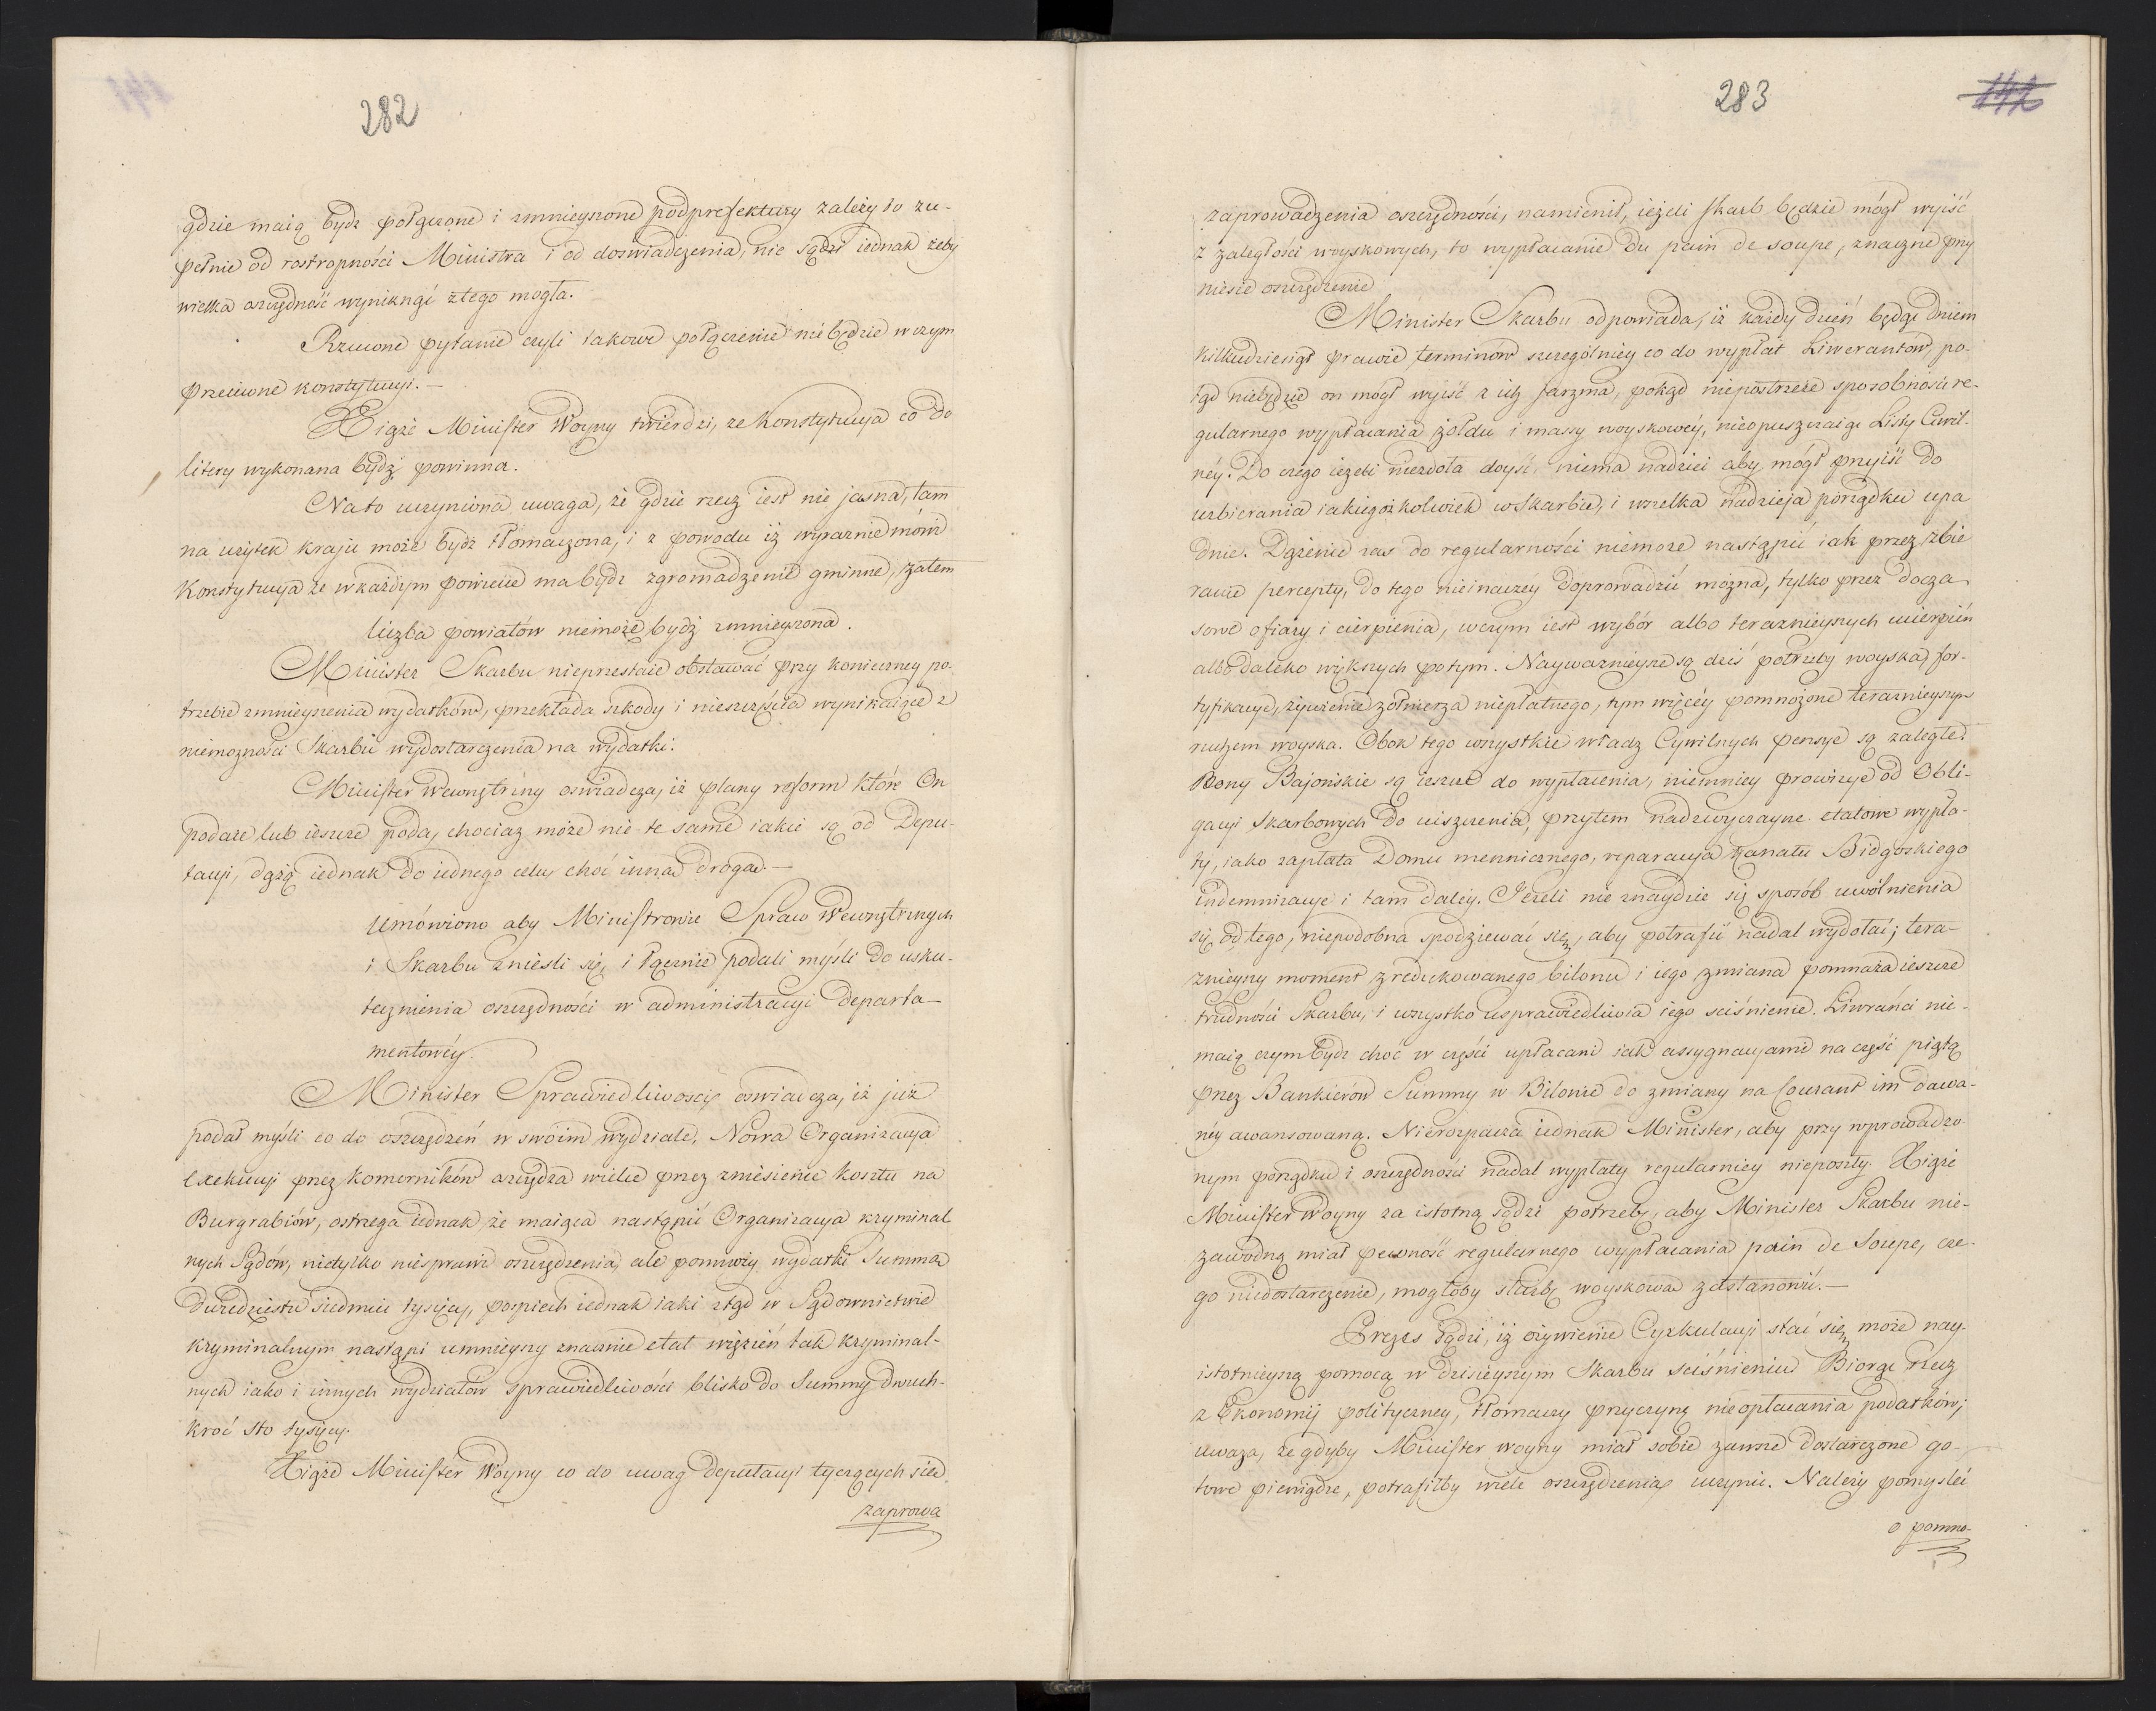 282
gdzie maią bydz połączone i zmnieyszone podprefektury zależy to zu-
pełnie od rostropności Ministra i od doswiadczenia, nie sądzi iednak żeby
wielka oszczędność wyniknąć ztego mogła.
Rzucone pytanie czyli takowe połączenie nie będzie w czym
przeciwne konstytucyi. —
Xiąże Minister Woyny twierdzi, ze Konstytucya co do
litery wykonana bydz powinna.
Na to uczyniona uwaga, że gdzie rzecz iest nie jasna, tam
na użytek kraju może bydz tłomaczona, i z powodu iż wyraznie mówi
Konstytucya że w każdym powiecie ma bydz zgromadzenie gminne, zatem
liczba powiatów niemoże bydz zmnieyszona.
Minister Skarbu nieprzestaie obstawać przy konieczney po-
trzebie zmnieyszenia wydatków, przekłada szkody i nieszczęścia wynikaiące z
niemożności Skarbu wydostarczenia na wydatki.
Minister Wewnętrzny oswiadcza, iż plany reform które On
podaie lub ieszcze poda, chociaz może nie te same iakie są od Depu-
tacyi, dążą iednak do iednego celu, choć inna droga. —
Umówiono aby Ministrowie Spraw Wewnętrznych
i Skarbu znieśli się, i łącznie podali myśli do usku-
tecznienia oszczędności w administracyi Departa-
mentowéy.
Minister Sprawiedliwości oswiadcza, iż już
podał myśli co do oszczędzeń w swoim wydziale. Nowa Organizacya
Exekucyi przez Komorników oszczędza wiele przez zniesienie kosztu na
Burgrabiów, ostrzega iednak że maiąca nastąpić Organizacya kryminal
nych Sądów, nietylko niesprawi oszczędzenia, ale pomnoży wydatki Summa
dwudziestu siedmiu tysięcy, pospiech iednak iaki ztąd w Sądownictwie
kryminalnym nastąpi umnieyszy znacznie etat więzień tak kryminal-
nych iako i innych wydziałów sprawiedliwości blisko do Summy dwuch-
kroć sto tysięcy.
Xiąże Minister Woyny co do uwag Deputacyi tyczących się
zaprowa
283
142
zaprowadzenia oszczędności, namienił, ieżeli skarb będzie mógł wyiść
z zaległości woyskowych, to wypłacanie Du pain de soupe, znaczne przy
niesie oszczędzenie
Minister Skarbu odpowiada, iż każdy dzień będąc dniem
kilkudziesiąt prawie terminów szczególniey co do wypłat Liwerantów, po-
tąd niebędzie on mógł wyiść z ich jarzma, pokąd niepostrzeże sposobności re-
gularnego wypłacania żołdu i massy woyskowéy, nieopuszczaiąc Listy Cywil-
néy. Do czego ieżeli niezdoła doyść, niema nadziei aby mógł przyiść do
uzbierania iakiegożkolwiek w Skarbie, i wszelka nadzieja porządku upa
dnie. Dążenie zas do regularności niemoże nastąpić iak przez zbie
ranie percepty, do tego nieinaczey doprowadzić można, tylko przez docza
sowe ofiary i cierpienia, w czym iest wybór albo teraznieyszych ucierpień
albo daleko większych potym. Naywaznieysze są dziś potrzeby woyska, for-
tyfikacye, żywienie żołnierza niepłatnego, tym więcéy pomnożone teraznieyszym
ruchem woyska. Obok tego wszystkie władz Cywilnych pensye są zaległe.
Bony Bajońskie są ieszcze do wypłacenia, niemniey prowizye od Obli-
gacyi Skarbowych do uiszczenia, przytem nadzwyczayne etatowe wypła-
ty, iako zapłata Domu mennicznego, reparacya Kanału Bidgoskiego
indemnizacye i tam daley. Jeżeli nie znaydzie się sposób uwolnienia
się od tego, niepodobna spodziewać się, aby potrafił nadal wydołać; tera-
znieyszy moment zredukowanego bilonu i iego zmiana pomnaża ieszcze
trudności Skarbu, i wszystko usprawiedliwia iego sciśnienie. Liwranci nie-
maią czym bydz choć w części upłacani iak assygnacyami na część piątą
przez Bankierów Summy w Bilonie do zmiany na Courant im dawa-
néy awansowaną. Nierozpacza iednak Minister, aby przy wprowadzo-
nym porządku i oszczędności nadal wypłaty regularniey nieposzły. Xiąże
Minister Woyny za istotną sądzi potrzebę, aby Minister Skarbu nie-
zawodną miał pewność regularnego wypłacania pain de Soupe, cze-
go niedostarczenie, mogłoby służbę woyskową zastanowić. —
Prezes sądzi, iż ożywienie Cyrkulacyi stać się może nay-
istotnieyszą pomocą w dzisieyszym Skarbu sciśnieniu. Biorąc rzecz
z Ekonomij polityczney, tłomaczy przyczynę nieopłacania podatków;
uważa, że gdyby Minister woyny miał sobie zawsze dostarczone go-
towe pieniądze, potrafiłby wiele oszczędzenia uczynić. Należy pomysleć
o pomno-